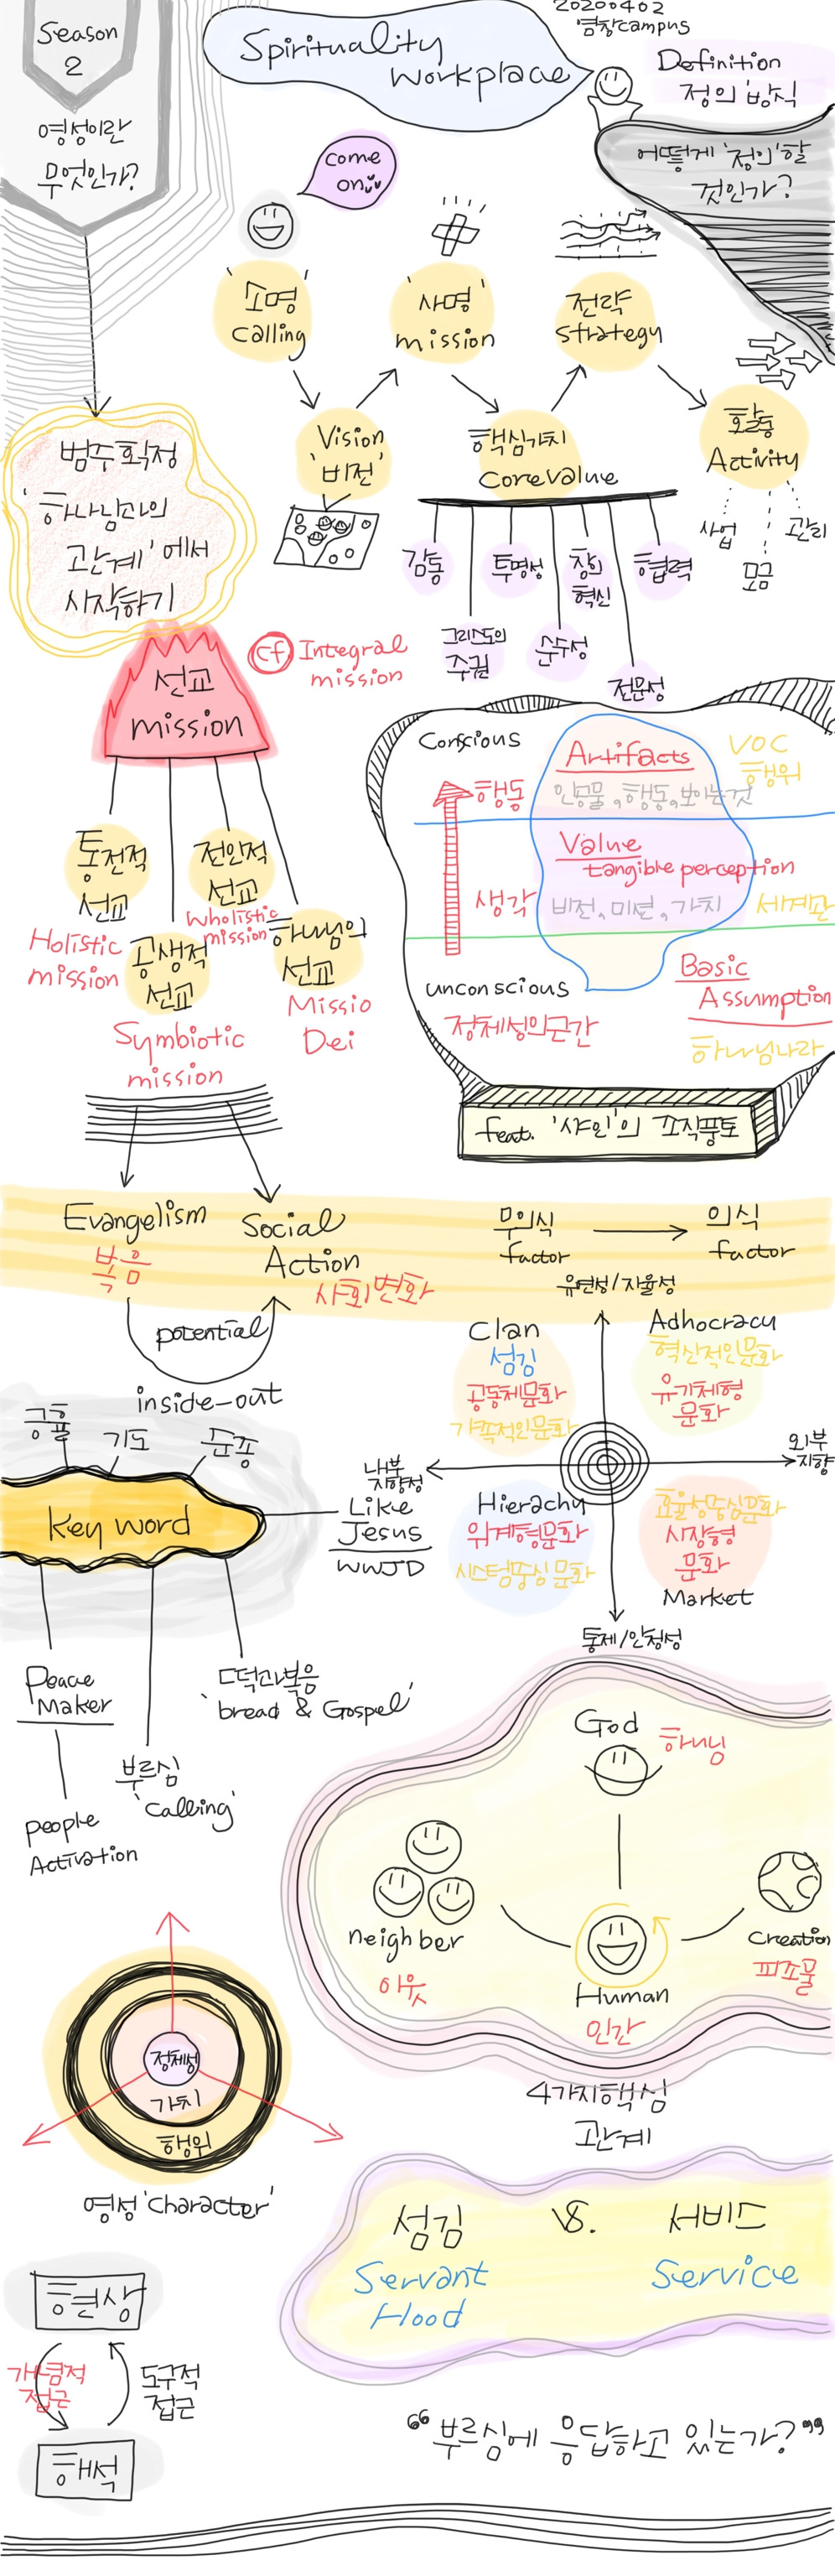 Season
2
영성이란
무엇인가?
Spirituality
workplace
20200402
염창campus
Definition
정의 방식
어떻게 '정의'할
것인가?
come
on
'소명'
calling
'사명'
mission
전략
strategy
Vision
'비전'
핵심가치
CoreValue
활동
Activity
사업
모금
관리
감동
그리스도의
주권
투명성
순수성
창의
혁신
전문성
협력
범주확정
'하나님과의
관계'에서
시작하기
선교
mission
cf Integral
mission
통전적
선교
Holistic
mission
공생적
선교
Symbiotic
mission
전인적
선교
Wholistic
mission
하나님의
선교
Missio
Dei
Conscious
Artifacts
VOC
행위
행동
인공물, 행동, 보이는것
Value
tangible perception
생각
비전, 미션, 가치
세계관
unconscious
정체성의근간
Basic
Assumption
하나님나라
feat. '샤인'의 조직풍토
Evangelism
복음
Social
Action
사회변화
potential
inside-out
무의식
factor
의식
factor
유연성/자율성
Clan
섬김
공동체문화
가족적인문화
Adhocracy
혁신적인문화
유기체형
문화
내부
지향성
외부
지향
Hierachy
위계형문화
시스템중심문화
효율성중심문화
시장형
문화
Market
통제/안정성
긍휼
기도
순종
Key word
Like
Jesus
WWJD
Peace
Maker
people
Activation
부르심
'calling'
떡과복음
'bread & Gospel'
God
하나님
neighber
이웃
Human
인간
Creation
피조물
4가지핵심
관계
정체성
가치
행위
영성'character'
섬김 vs. 서비스
Servant
Hood
Service
현상
개념적
접근
도구적
접근
해석
"부르심에 응답하고 있는가?"